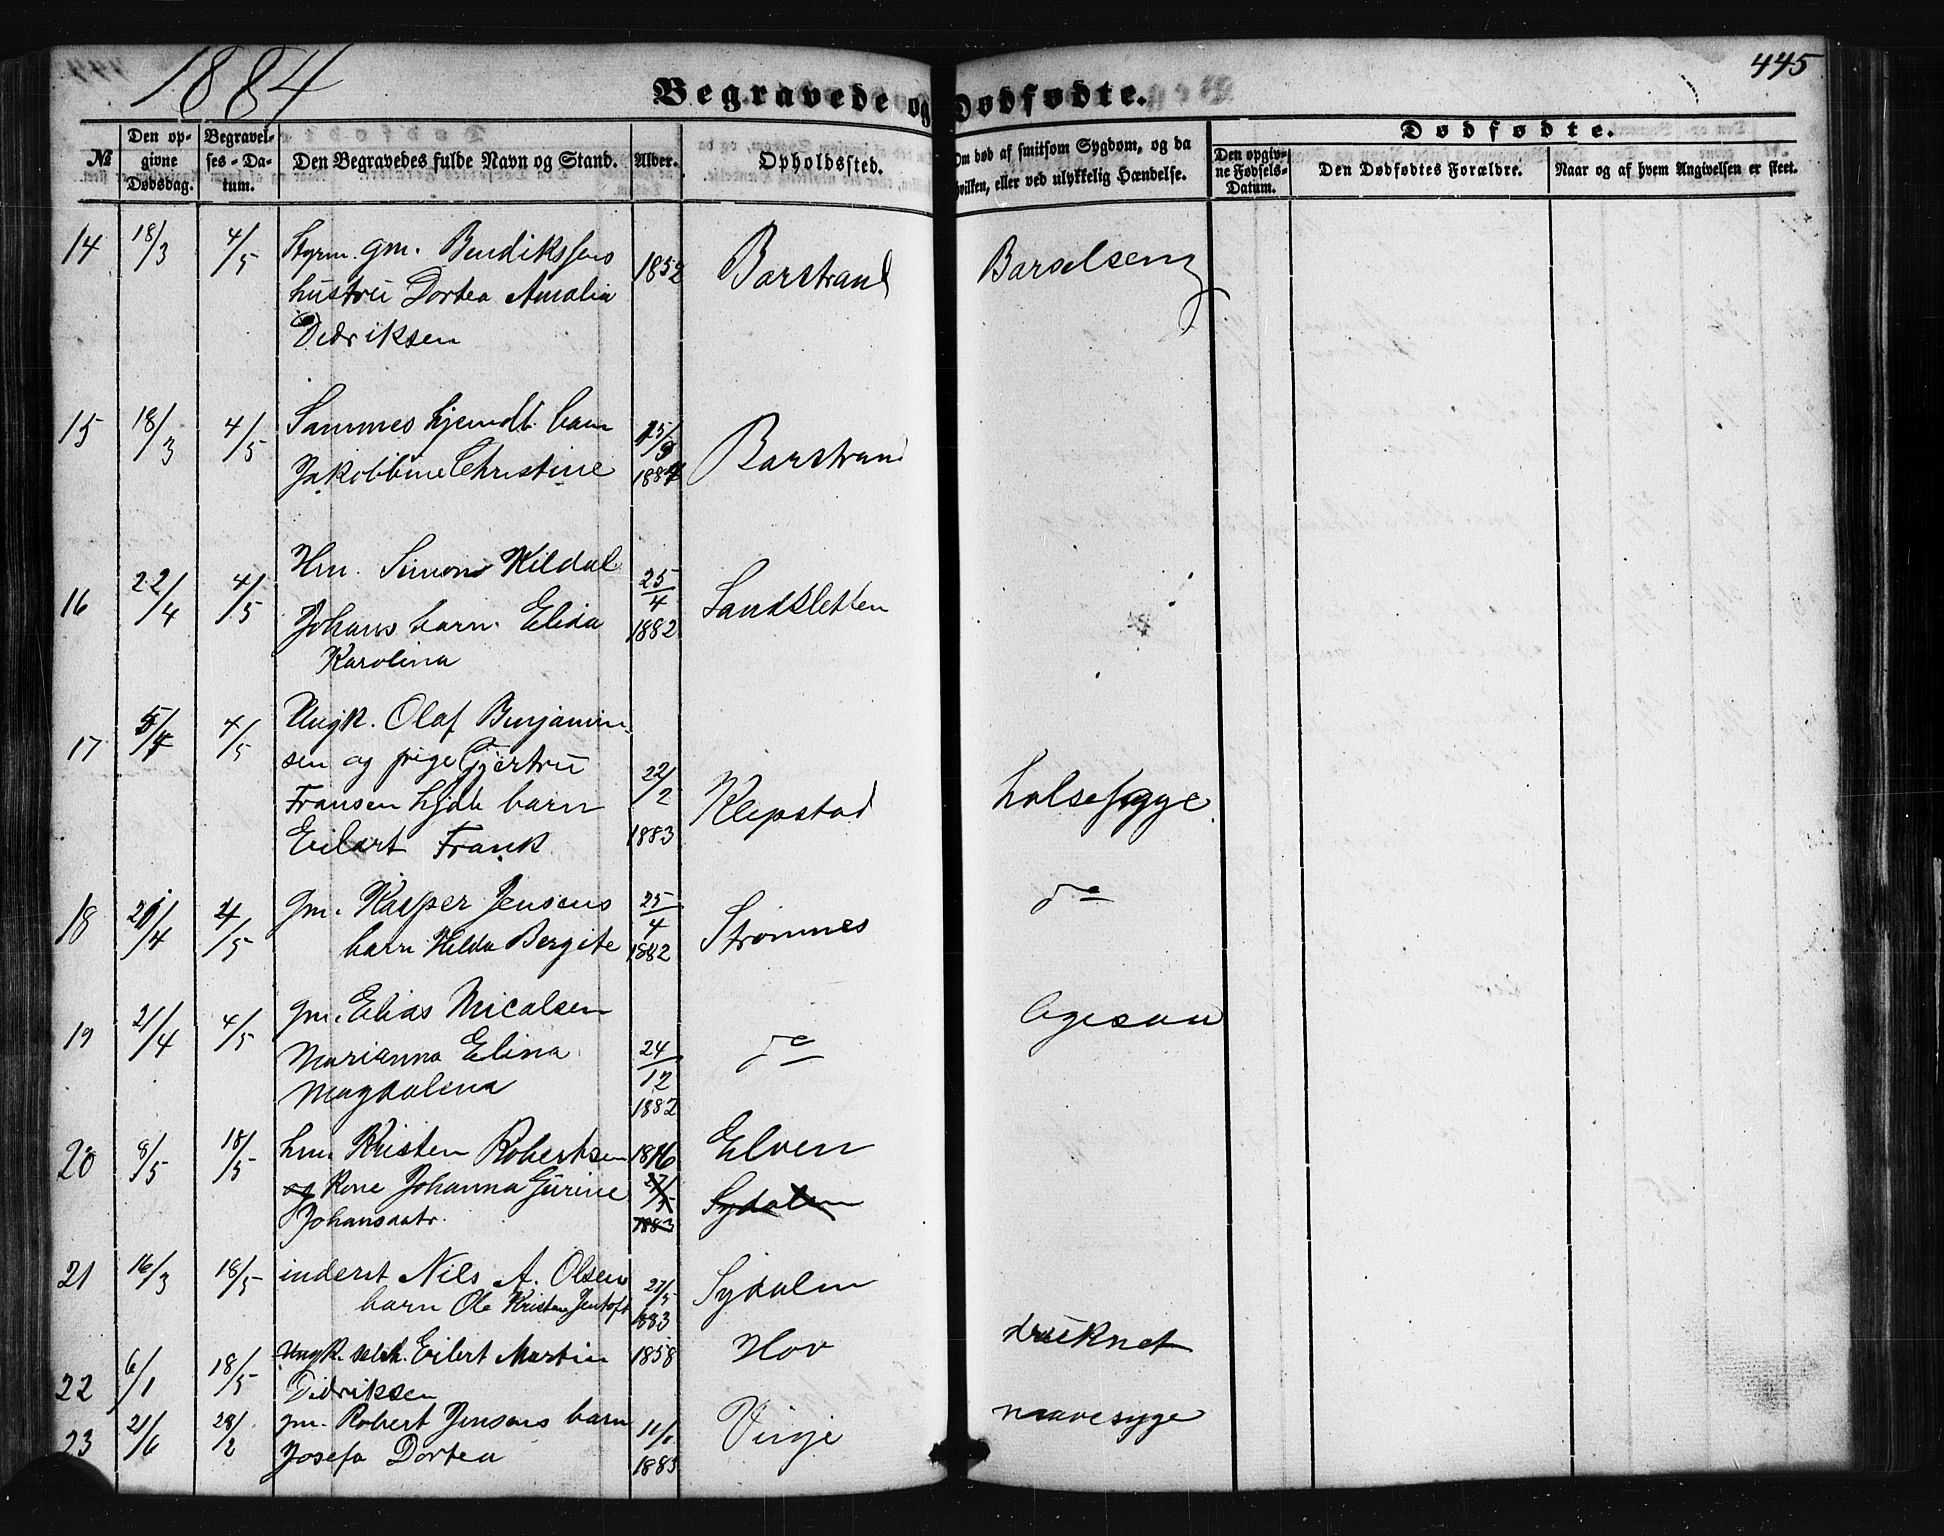 1884
445
Begravede og Dødfødte.
Dødfødte.
No
Den opgivne Dødsdag.
Begravelses-Datum.
Den Begravedes fulde Navn og Stand.
Alder.
Opholdssted.
Om død af smitsom Sygdom, og da hvilken, eller ved ulykkelig Hændelse.
Den opgivne Fødsels-Datum.
Den Dødfødtes Forældre.
Naar og af hvem Angivelsen er skeet.
14 18/3 4/5 Styrm. gm. Bendikssens 1852 Barstrand Barselseng
hustru Dortea Amalia
Didriksen
15 18/3 4/5 Sammes hjemdt. barn 15/3 Barstrand
Jakobbine Christine 1884
16 22/4 4/5 Hm. Simon Kildal 25/4 Sandsletten
Johans barn. Elida 1882
Karolina
17 5/4 4/5 Ungk. Olaf Benjamin-
sen og pige Gjertru 22/2
Fransen hjdt. barn Klepstad halsesyge
Eilert Frank 1883
18 21/4 4/5 gm. Kasper Jensens 25/4 Strømnes do
barn Hilda Bergite 1882
19 21/4 4/5 gm. Elias Micalsen do
Marianna Elina 24/12
Magdalena 1882
20 8/5 18/5 hm. Kristen Robertsen 1816 Elven
og Kone Johanna Gurine 27/5 Sydalen
Johansdatr. 1883
21 16/3 18/5 inderst Nils A. Olsens 27/5 Sydalen
barn Ole Kristian Jentoft 1883
22 6/1 18/5 Ungk. selvst. Eilert Martin 1858 Hov druknet
Didriksen
23 21/6 28/2 gm. Robert Jensens barn 11/1 Vinje mavesyge
Josefa Dortea 1883